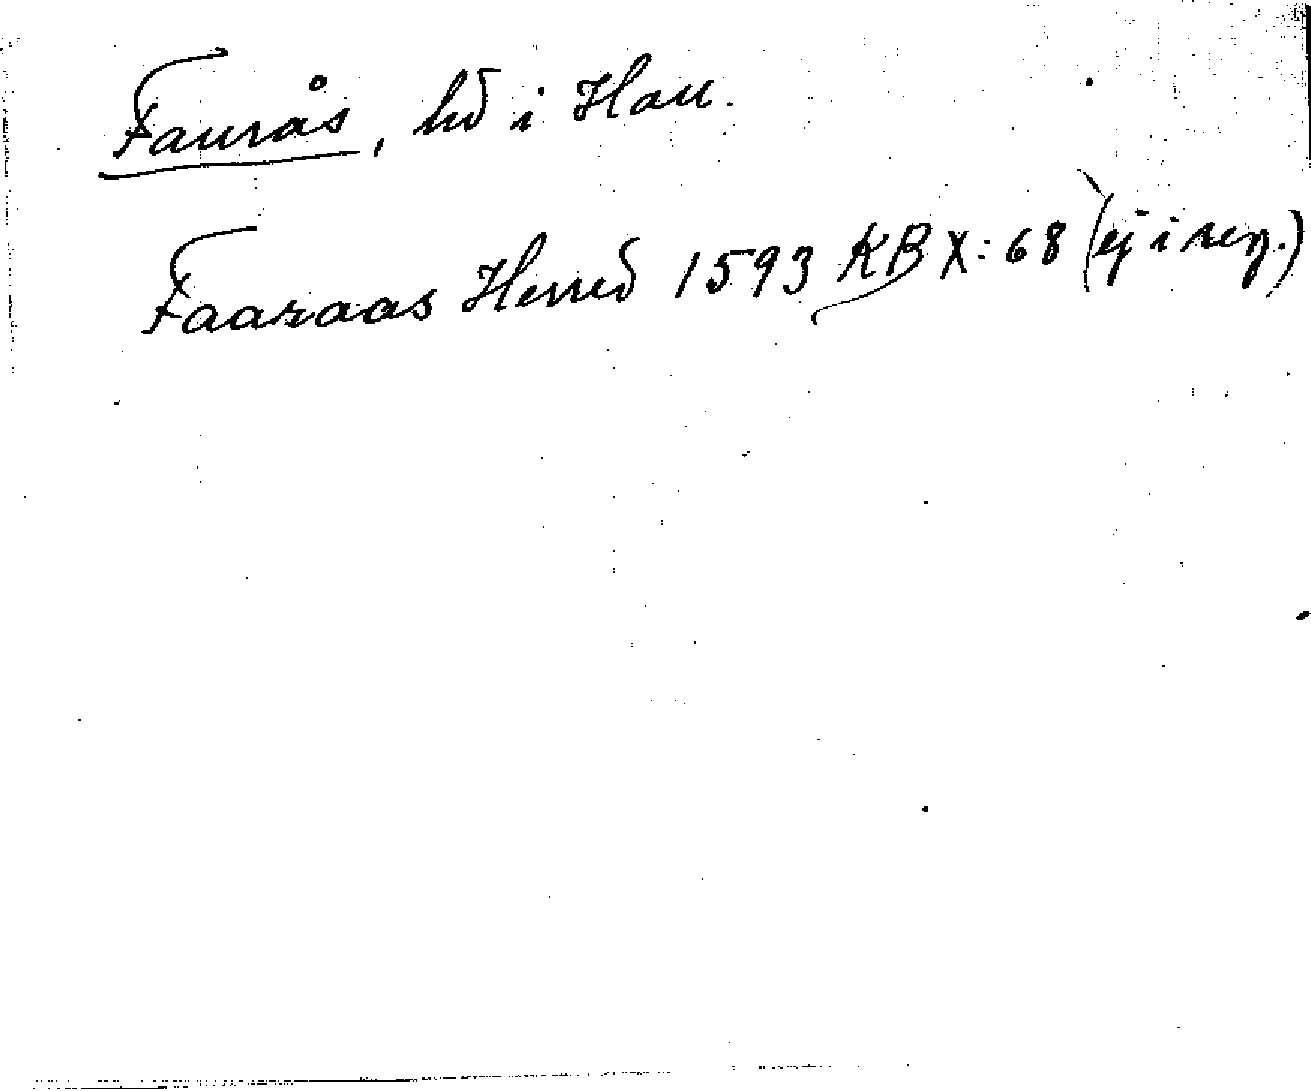 Faurås, hd i Hall.
Faaraas Herred 1593 KB X: 68 (ej i reg.)